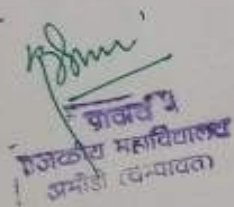 प्राचार्य
राजकीय महाविद्यालय
अमोडी (चम्पावत)